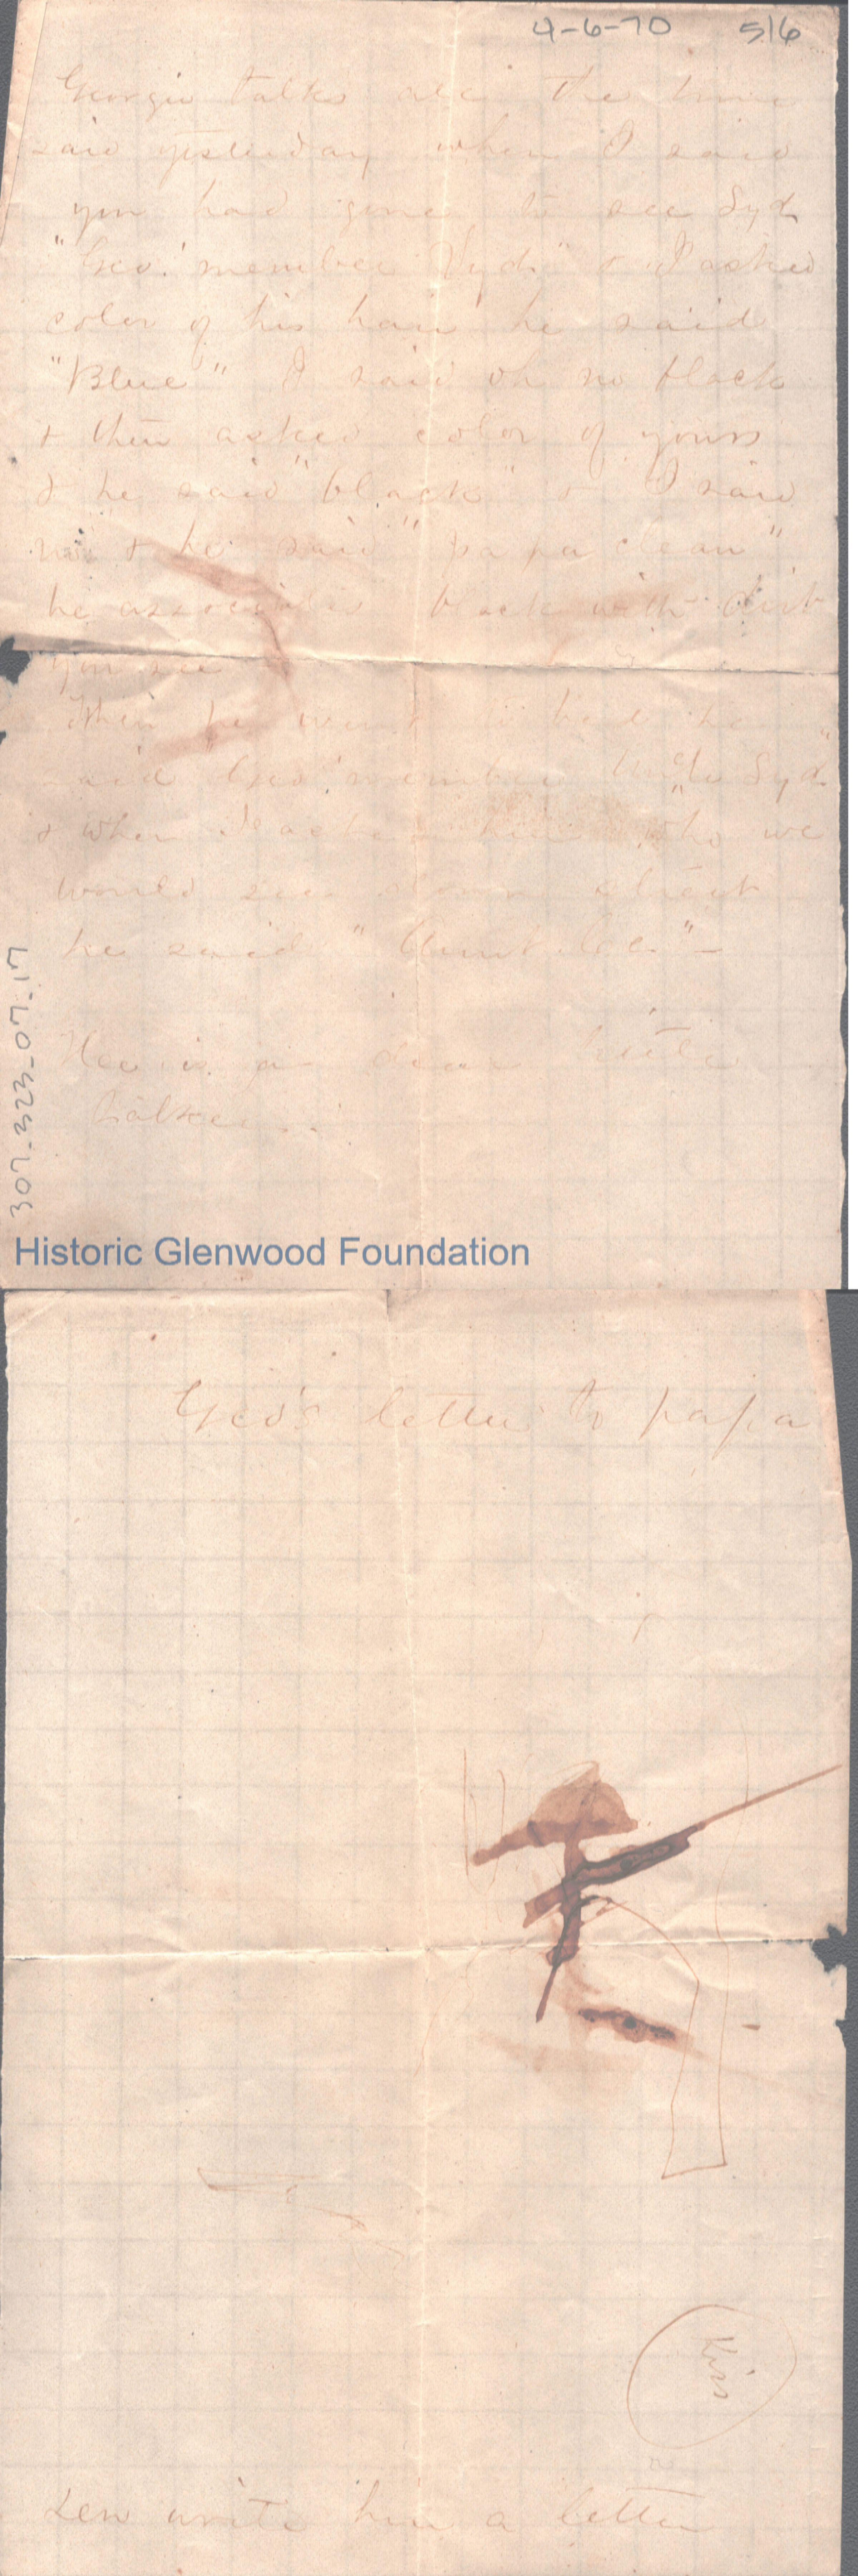 4-6-70 516
Georgie talks all the time
said yesterday when I said
you had gone to see Syd.
"Geo. 'member Syd." & I asked
color of his hair he said
"Blue" I said oh no black
& then asked color of yours
& he said "black" & I said
no & he said "papa clean"
he associates black with dirt
you see
When he went to bed he
said "Geo. 'member Uncle Syd."
& when I asked him who we
would see down street
he said "Aunt
He is a dear little
talker.
307-323-07-17
Historic Glenwood Foundation
Geo's letter to papa
Kiss
write him a letter